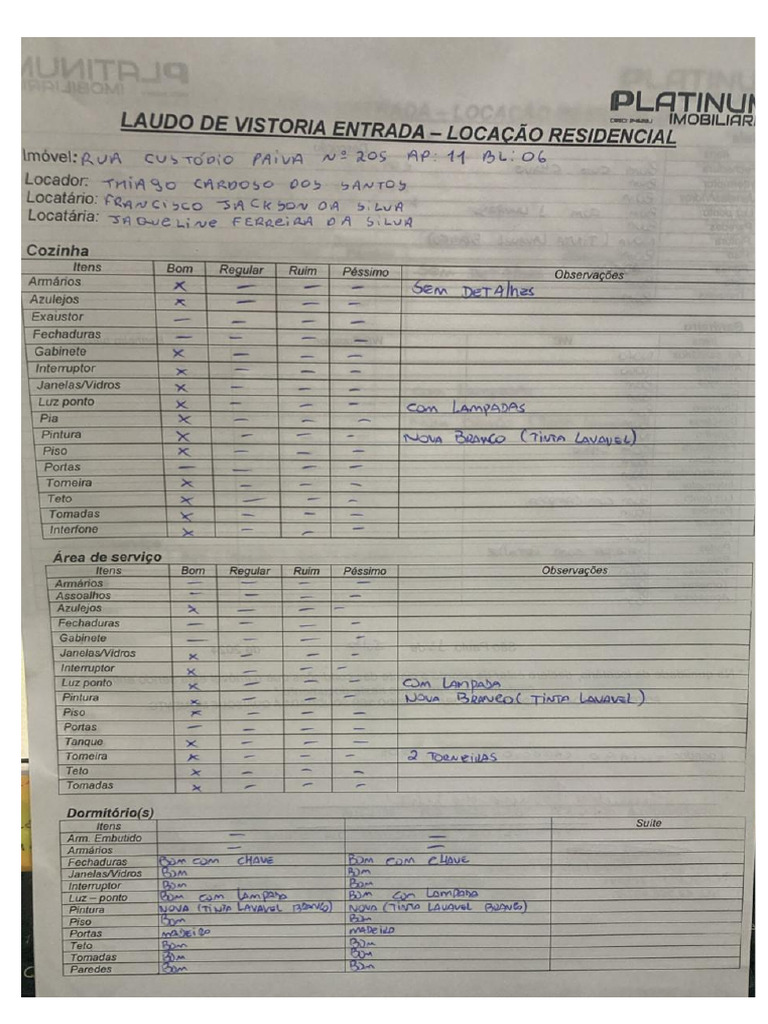 PLATINUM
IMOBILIÁRI
LAUDO DE VISTORIA ENTRADA – LOCAÇÃO RESIDENCIAL
Imóvel: RUA CUSTÓDIO PAIVA Nº 205 AP: 11 BL: 06
Locador: THIAGO CARDOSO DOS SANTOS
Locatário: FRANCISCO JACKSON DA SILVA
Locatária: JAQUELINE FERREIRA DA SILVA
Cozinha
Itens Bom Regular Ruim Péssimo Observações
Armários X — — — SEM DETALHES
Azulejos X — — —
Exaustor — — — —
Fechaduras — — — —
Gabinete X — — —
Interruptor X — — —
Janelas/Vidros X — — —
Luz ponto X — — — COM LAMPADAS
Pia X — — —
Pintura X — — — NOVA BRANCO (TINTA LAVAVEL)
Piso X — — —
Portas — — — —
Torneira X — — —
Teto X — — —
Tomadas X — — —
Interfone X — — —
Área de serviço
Itens Bom Regular Ruim Péssimo Observações
Armários — — — —
Assoalhos — — — —
Azulejos X — — —
Fechaduras — — — —
Gabinete — — — —
Janelas/Vidros X — — —
Interruptor X — — —
Luz ponto X — — — COM LAMPADA
Pintura X — — — NOVA BRANCO (TINTA LAVAVEL)
Piso X — — —
Portas — — — —
Tanque X — — —
Torneira X — — — 2 TORNEIRAS
Teto X — — —
Tomadas X — — —
Dormitório(s)
Itens Suite
Arm. Embutido — —
Armários — —
Fechaduras BOM COM CHAVE BOM COM CHAVE
Janelas/Vidros BOM BOM
Interruptor BOM BOM
Luz – ponto BOM COM LAMPADA BOM COM LAMPADA
Pintura NOVA (TINTA LAVAVEL BRANCO) NOVA (TINTA LAVAVEL BRANCO)
Piso BOM BOM
Portas MADEIRO MADEIRO
Teto BOM BOM
Tomadas BOM BOM
Paredes BOM BOM